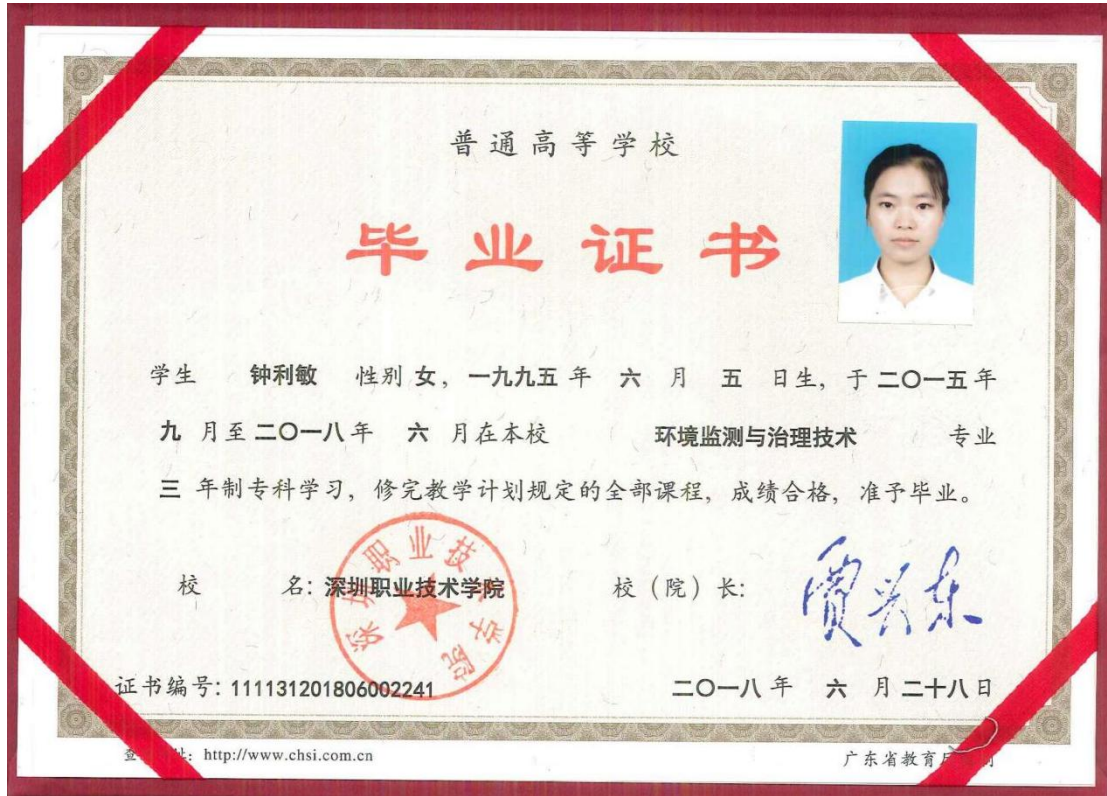 普通高等学校
毕业证书
学生 钟利敏 性别 女，一九九五 年 六 月 五 日生，于 二〇一五 年
九 月至 二〇一八 年 六 月在本校 环境监测与治理技术 专业
三 年制专科学习，修完教学计划规定的全部课程，成绩合格，准予毕业。
校 名：深圳职业技术学院 校（院）长： 贾兴东
深圳职业技术学院
证书编号：111131201806002241 二〇一八 年 六 月 二十八 日
查 址：http://www.chsi.com.cn 广东省教育厅